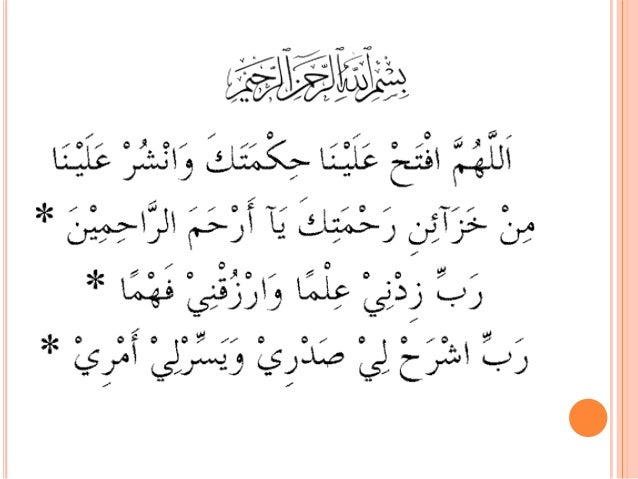 بِسْمِ ٱللَّٰهِ ٱلرَّحْمَٰنِ ٱلرَّحِيمِ
اَللَّهُمَّ افْتَحْ عَلَيْنَا حِكْمَتَكَ وَانْشُرْ عَلَيْنَا
مِنْ خَزَآئِنِ رَحْمَتِكَ يَآ أَرْحَمَ الرَّاحِمِيْنَ *
رَبِّ زِدْنِيْ عِلْمًا وَارْزُقْنِيْ فَهْمًا *
رَبِّ اشْرَحْ لِيْ صَدْرِيْ وَيَسِّرْلِيْ أَمْرِيْ *